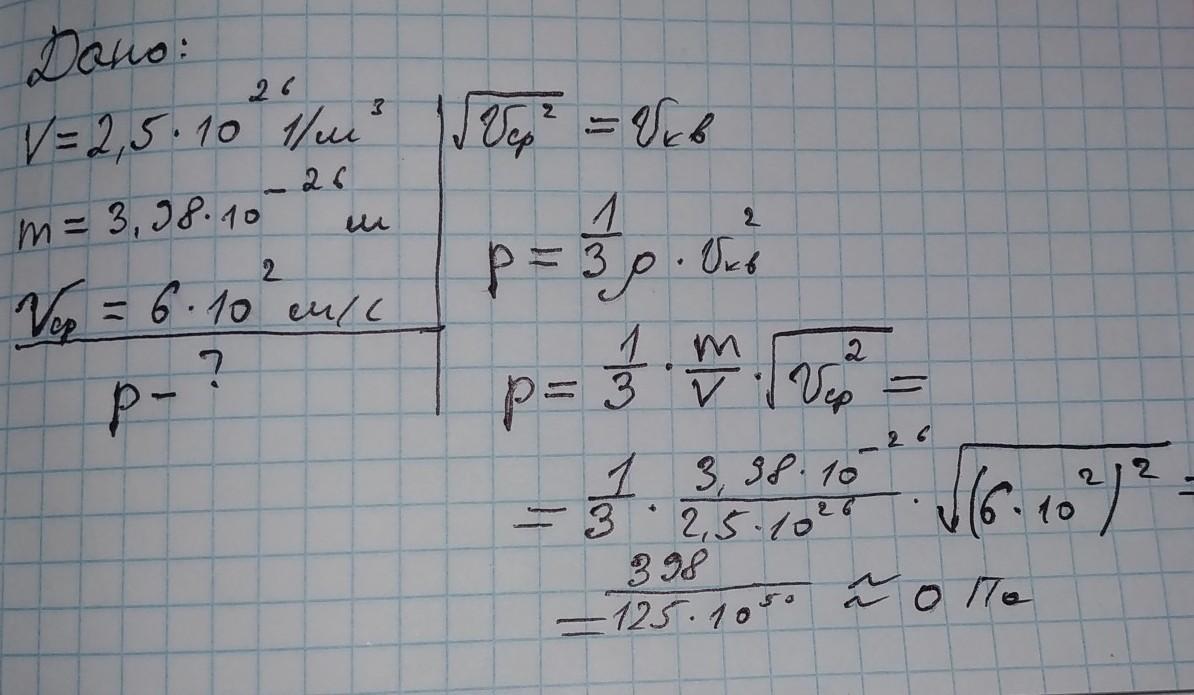 Дано:
V = 2,5 · 10²⁶ 1/м³
m = 3,98 · 10⁻²⁶ м
Vср = 6 · 10² м/с
p - ?
√(Vср²) = Vкв
p = 1/3 ρ · Vкв²
p = 1/3 · m/V · √(Vср²) =
= 1/3 · (3,98 · 10⁻²⁶)/(2,5 · 10²⁶) · √((6 · 10²)²) =
= 398/(125 · 10⁵⁰) ≈ 0 Па